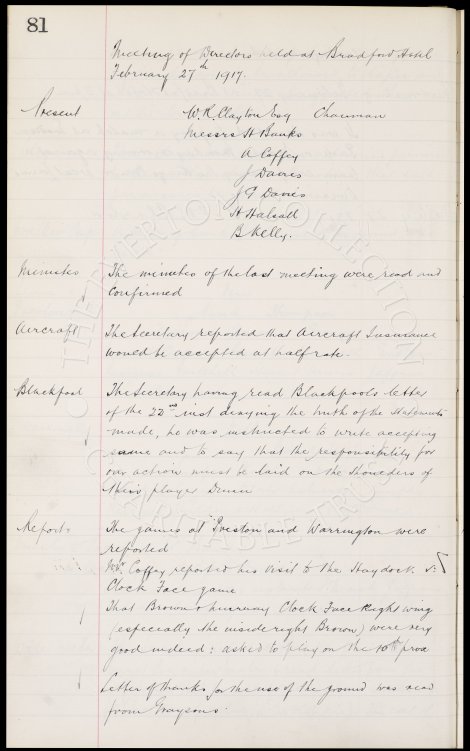 81
Meeting of Directors held at Bradford Hotel
February 27th 1917.
Present W.R. Clayton Esq Chairman
Messrs H Banks
A Coffey
J Davies
J P Davies
H Halsall
B Kelly.
Minutes The minutes of the last meeting were read and
confirmed
Aircraft The Secretary reported that Aircraft Insurance
would be accepted at half rate.
Blackpool The Secretary having read Blackpools letter
of the 22nd inst denying the truth of the statements
made, he was instructed to write accepting
same and to say that the responsibility for
our action must be laid on the shoulders of
their player
Reports The games at Preston and Warrington were
reported
Mr. Coffey reported his visit to the Haydock v
Clock Face game
That Brown & Clock Face Right wing
(especially the inside right Brown) were very
good indeed: asked to play on the 10th prox
Letter of thanks for the use of the ground was read
from Graysons.
© THE EVERTON COLLECTION
CHARITABLE TRUST